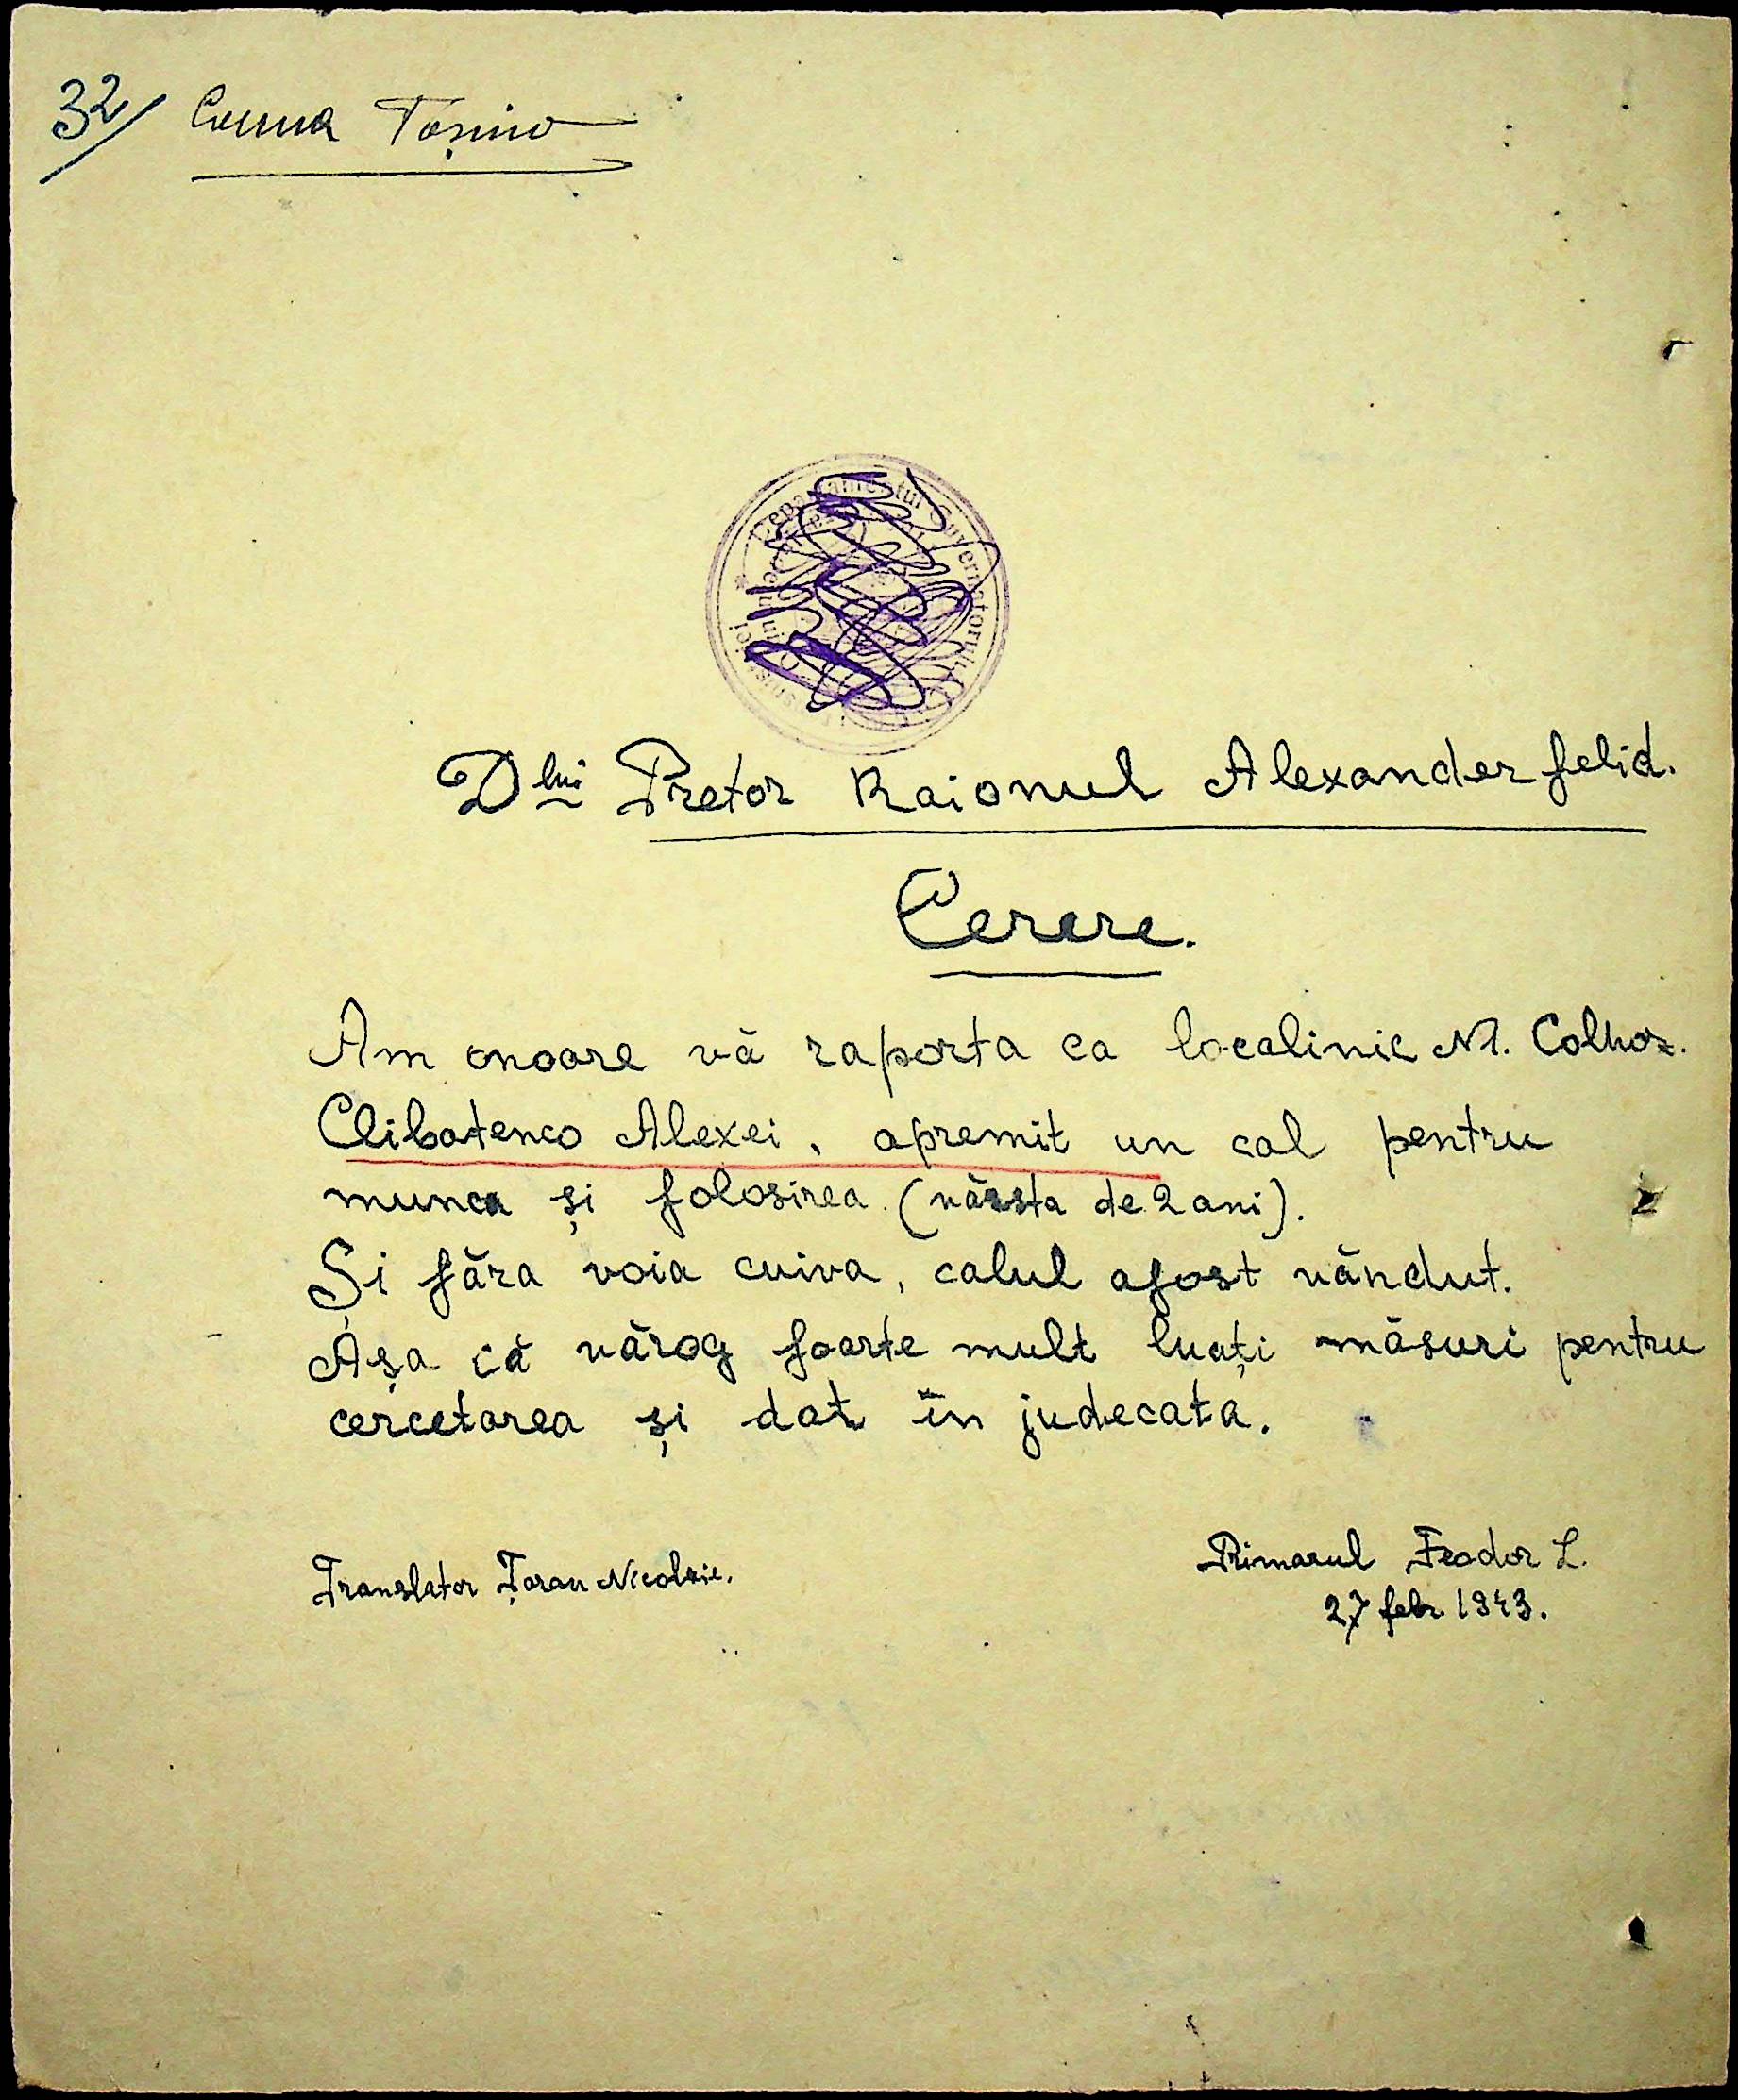 32/ Comuna Tașino
Departamentul Guvernatorului
Dlui Pretor Raionul Alexander felid.
Cerere.
Am onoare vă raporta ca localinic N1. Colhoz.
Clibatenco Alexei, apremit un cal pentru
munca și folosirea. (vărsta de 2 ani).
Și făra voia cuiva, calul afost văndut.
Așa că vărog foarte mult luați măsuri pentru
cercetarea și dat în judecata.
Translator Țaran Nicolaie.
Primarul Feodor L.
27 febr. 1943.